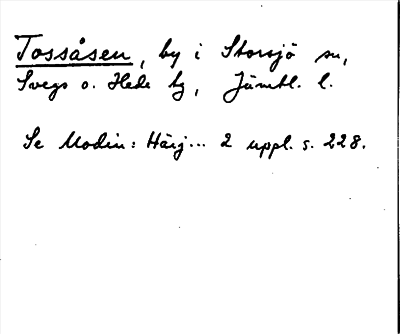 Tossåsen, by i Storsjö sn,
Svegs o. Hede tg, Jämtl. l.
Se Modin: Härj... 2 uppl. s. 228.